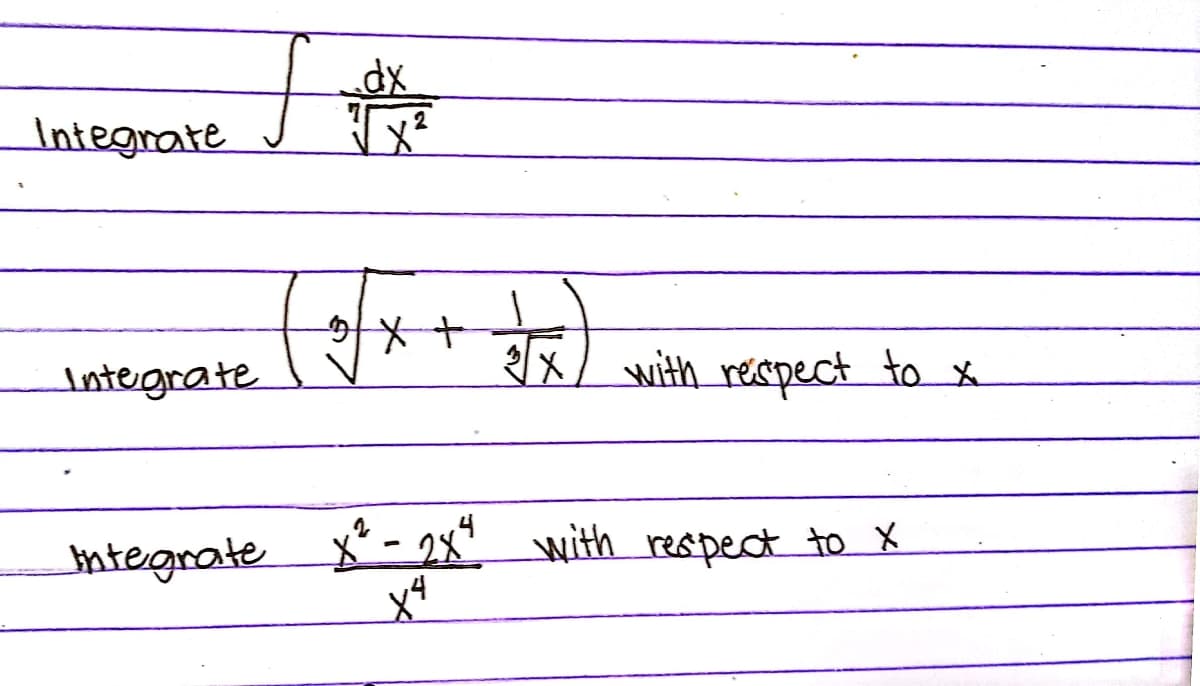 Integrate ∫ dx / ⁷√x²
Integrate (³√x + 1/³√x) with respect to x
Integrate x² - 2x⁴ / x⁴ with respect to x